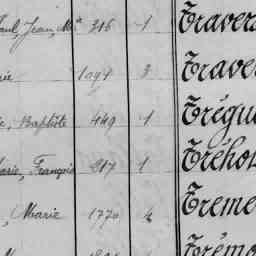 Paul, Jean, M.ᵉ 316 1 Travers
rie 1097 3 Traver
e, Baptiste 449 1 Trégu
Marie, François 217 1 Tréhou
, Marie 1770 4 Treme
Trémo